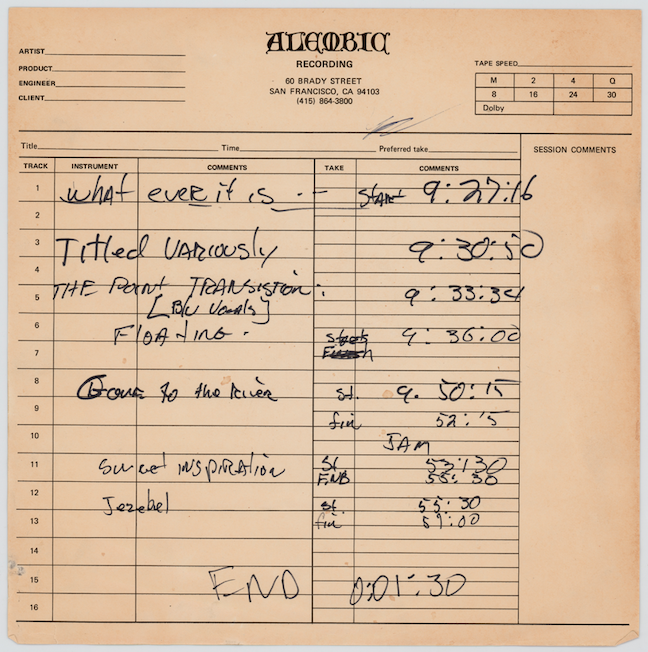 ALEMBIC
RECORDING
60 BRADY STREET
SAN FRANCISCO, CA 94103
(415) 864-3800
ARTIST
PRODUCT
ENGINEER
CLIENT
TAPE SPEED
M 2 4 Q
8 16 24 30
Dolby
Title Time Preferred take
SESSION COMMENTS
TRACK INSTRUMENT COMMENTS TAKE COMMENTS
1 what ever it is -- start 9:27:16
2
3 Titled VARIOUSLY 9:30:50
4
THE POINT TRANSISTION: 9:33:34
5 [B/U Vocals]
6 FLOATING. 9:36:00
7
8 Gone to the River st. 9.50:15
9 fin 52:15
10 JAM
11 Sweet INSPIRATION St. 53:30
END 55:30
12 Jezebel st. 55:30
13 fin 59:00
14
15 END 0:01:30
16